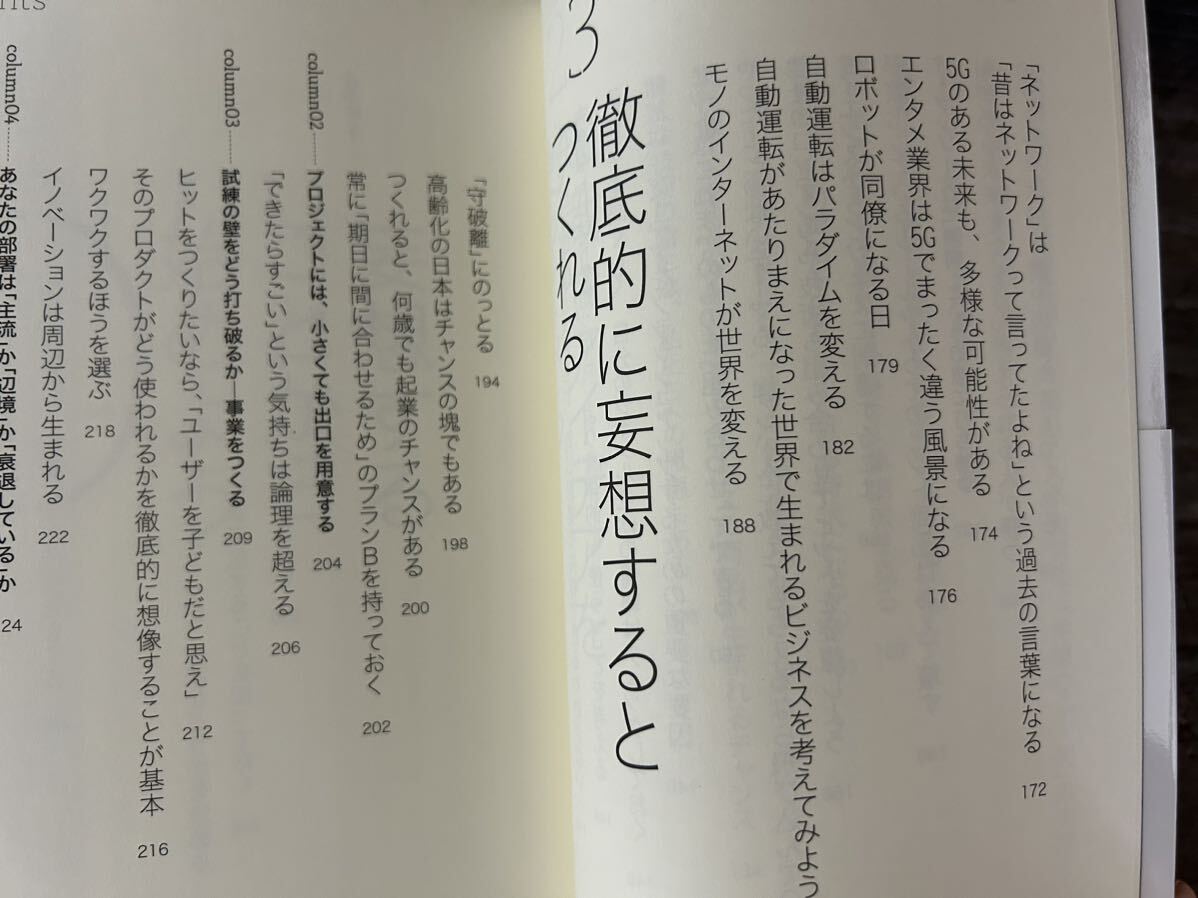 「ネットワーク」は
「昔はネットワークって言ってたよね」という過去の言葉になる 172
5Gのある未来も、多様な可能性がある 174
エンタメ業界は5Gでまったく違う風景になる 176
ロボットが同僚になる日 179
自動運転はパラダイムを変える 182
自動運転があたりまえになった世界で生まれるビジネスを考えてみよう
モノのインターネットが世界を変える 188
3 徹底的に妄想すると
つくれる
「守破離」にのっとる 194
高齢化の日本はチャンスの塊でもある 198
つくれると、何歳でも起業のチャンスがある 200
常に「期日に間に合わせるため」のプランBを持っておく 202
column02……プロジェクトには、小さくても出口を用意する 204
「できたらすごい」という気持ちは論理を超える 206
column03……試練の壁をどう打ち破るか―事業をつくる 209
ヒットをつくりたいなら、「ユーザーを子どもだと思え」 212
そのプロダクトがどう使われるかを徹底的に想像することが基本 216
ワクワクするほうを選ぶ 218
イノベーションは周辺から生まれる 222
column04……あなたの部署は「主流」か「辺境」か「衰退している」か